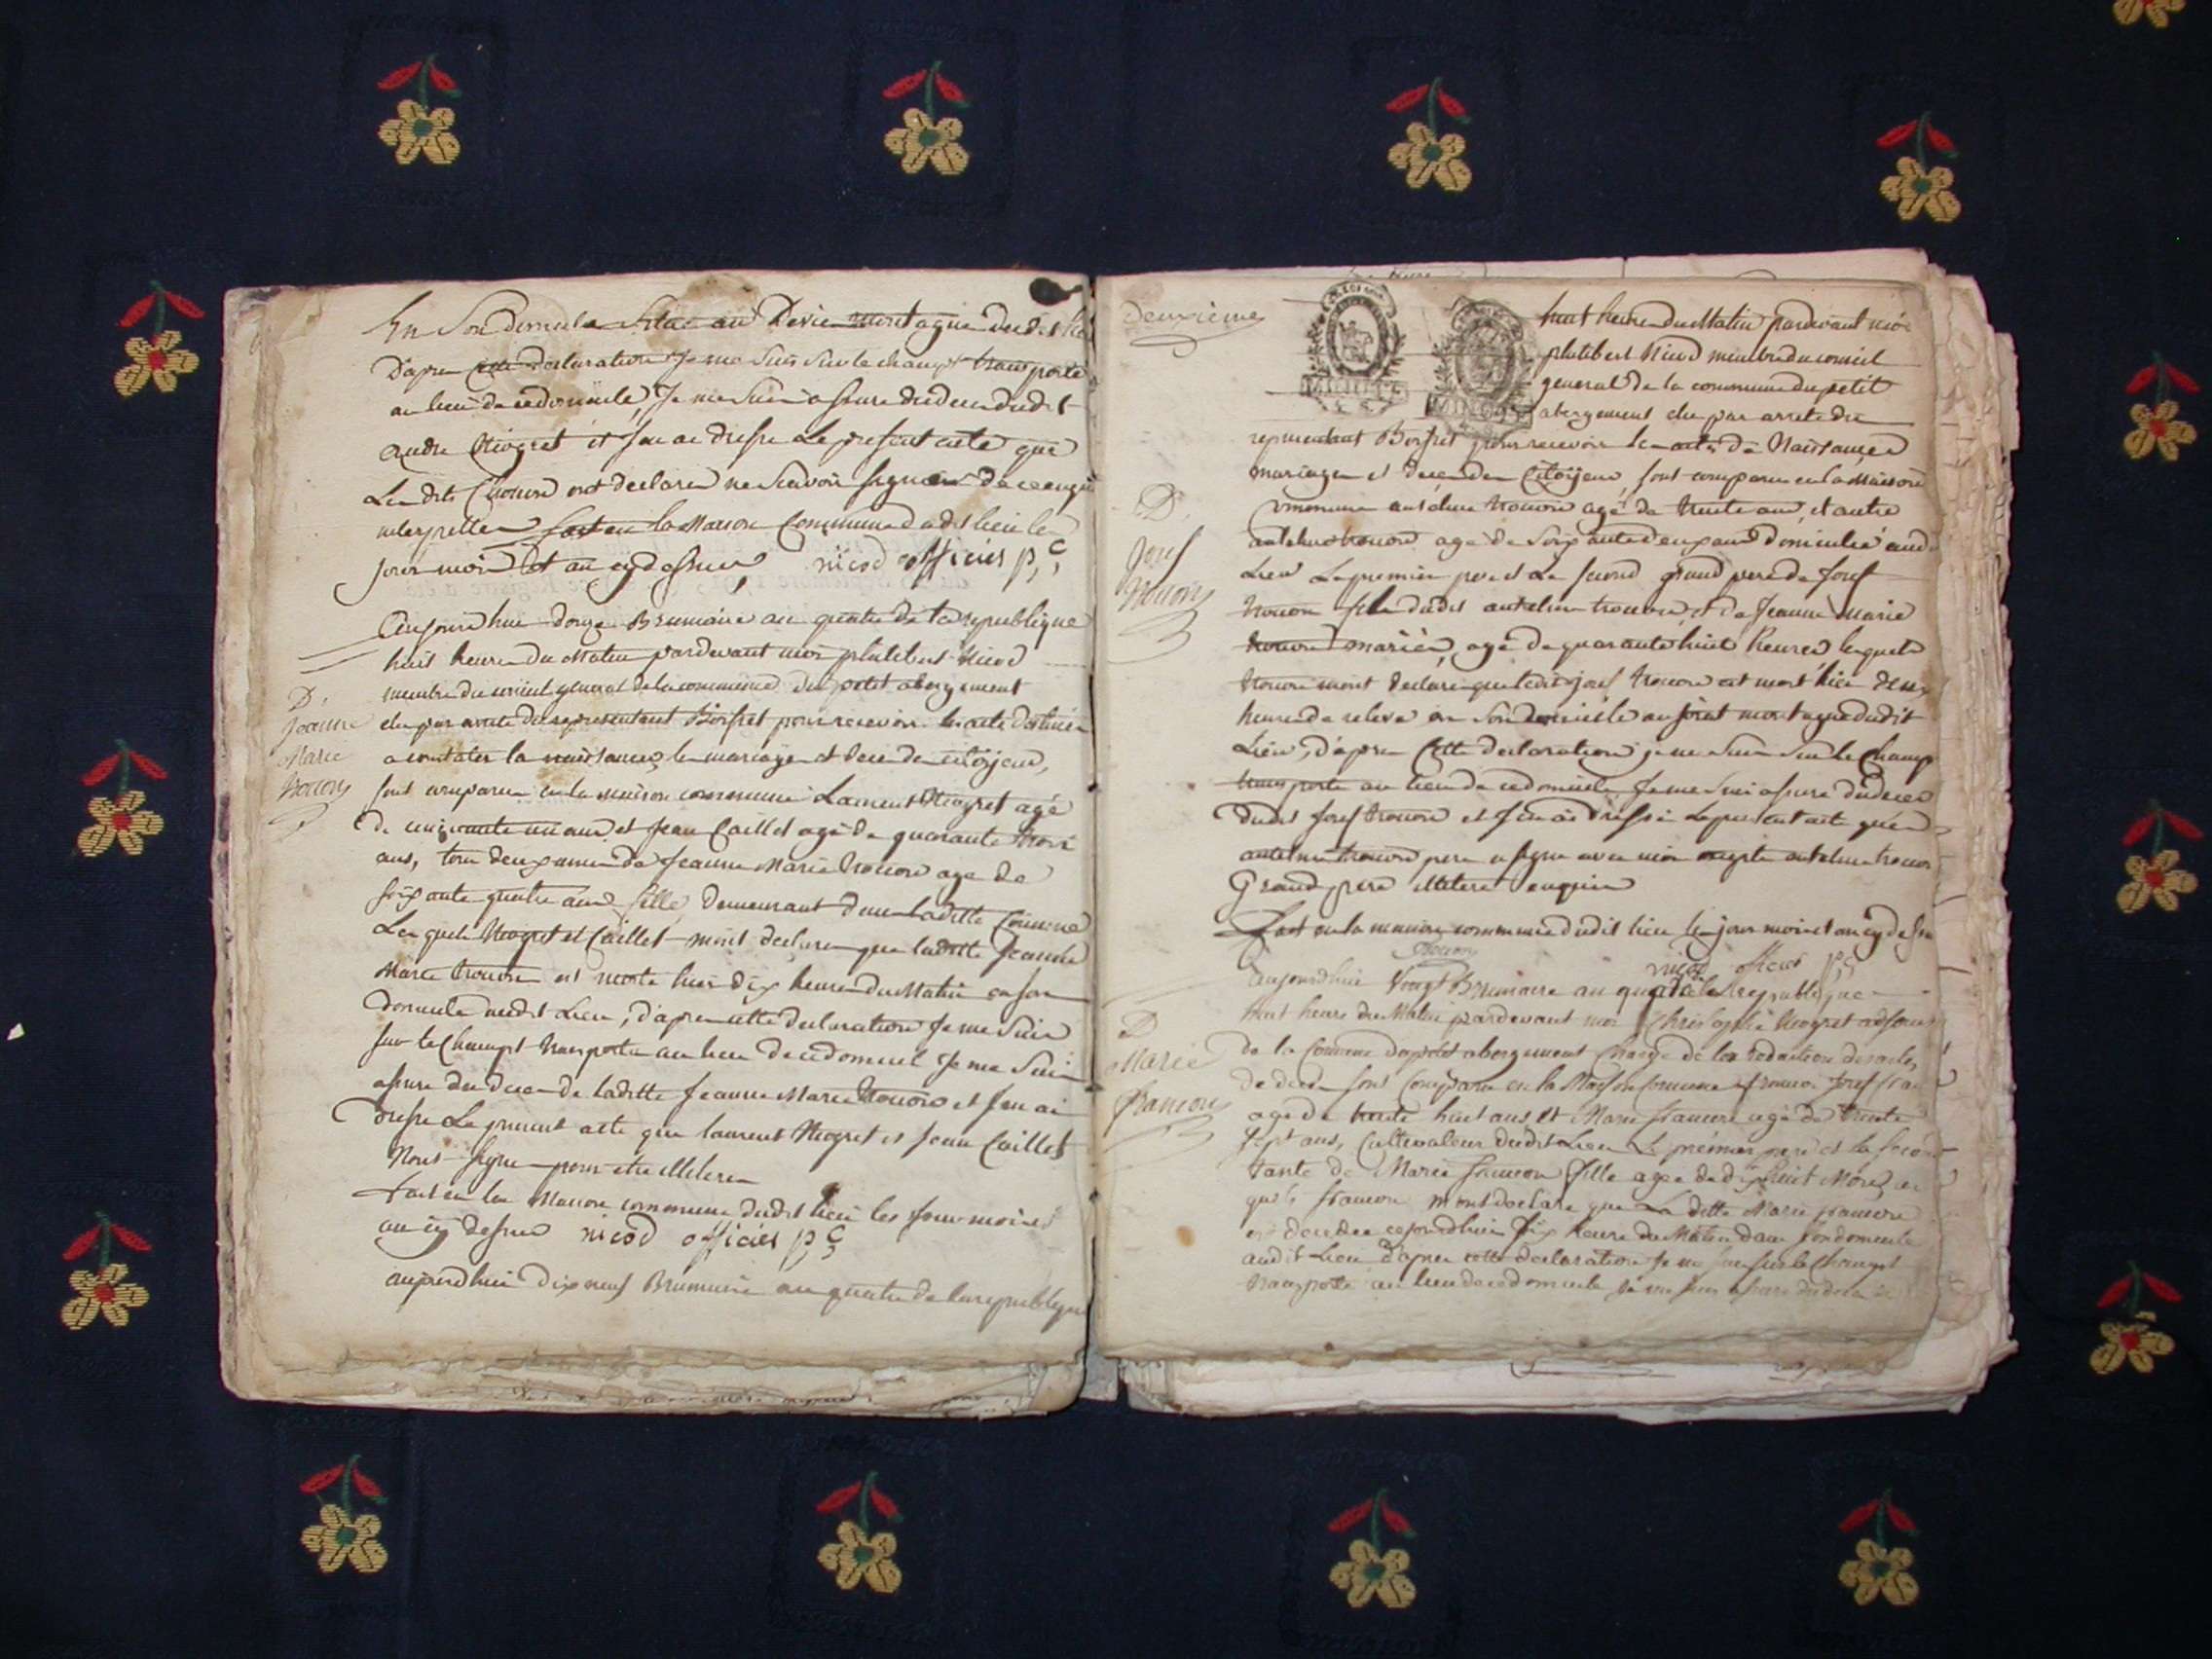 En Son domicile Situé au Devie montagne dudit lieu
D'apres Cette declaration Je me Suis Sur le champt transporté
au lieu de ce domicile, Je me Suis assure du deces dudit
andre Niogret et J'en ai dresse Le present acte que
Les dits ont declarer ne Scavoir signer de ce enquis
interpeller fait en la Maison Commune dudit lieu les
jour mois et an cy dessus nicod officier p.c
Aujourd'hui douze Brumaire an quatre de la republique
huit heures du Matin pardevant moi philibert Nicod
membre du conseil general de la commune du petit abergement
elu par arrete du representant Boisset pour recevoir les actes destinés
a constater la naissances, les mariages et deces des citoijens,
sont comparus en la maison commune Laurent Niogret agé
de cinquante un ans et Jean Caillet agé de quarante trois
ans, tous deux de Jeanne Marie trocon age de
soixante quatre ans fille, demeurant dans Laditte Commune
Lesquels Niogret et Caillet mont declare que laditte Jeanne
Marie trocon est morte hier dix heures du Matin en son
domicile audit Lieu, d'apres cette declaration Je me Suis
sur le Champt transporté au lieu de ce domicile Je me Suis
assure du deces de laditte Jeanne Marie trocon et J'en ai
dresse Le present acte que laurent Niogret et Jean Caillet
signe pour etre illeteres
fait en la Maison commune dudit lieu les jour mois et
an cy dessus nicod officier p.c
aujourdhui dix neuf Brumaire an quatre de la republique
D.
Jeanne
Marie
trocon
Deuxieme
huit heures du Matin pardevant moi
philibert Nicod membre du conseil
general de la commune du petit
abergement elu par arrete du
representant Boisset pour recevoir les actes de Naissances
mariages et deces des Citoijens, sont comparus en la Maison
commune antelme trocon agé de trente ans, et autre
antelme trocon agé de Soixante deux ans domiciliés aud
Lieu Le premier pere et Le second grand pere de Josef
trocon fils dudit antelme trocon et de Jeanne Marie
trocon mariés, agé de quarante huit heures lesquels
trocon mont declare que ledit josef trocon est mort hier deux
heures de releve en Son domicile au montagne dudit
Lieu, d'apres Cette declaration je me Suis Sur le Champ
transporte au lieu de ce domicile Je me Suis assure du deces
dudit Josef trocon et J'en ai dressé Le present acte que
antelme trocon pere a signe avec moi antelme trocon
Grand pere illeteré enquis
Fait en la maison commune dudit lieu les jour mois et an cy dessus
trocon
nicod officier p.c
aujourdhui Vingt Brumaire an quatre de la republique
huit heures du Matin pardevant moi Christophe Niogret adjoint
de la Commune du petit abergement Chargé de la redaction des actes
de deces sont Comparu en la Maison Commune francois Josef
agé de trente huit ans et Marie francon agé de trente
sept ans, Cultivateurs dudit Lieu Le premier pere et la second
tante de Marie francon fille agee de dix huit Mois,
francon mont declare que La ditte Marie francon
est decedee ce jourdhui Six heure du Matin dans son domicile
audit Lieu D'apres cette declaration Je me suis sur le Champt
transporte au lieu de ce domicile Je me suis assure du deces
D.
Josef
trocon
D
Marie
francon